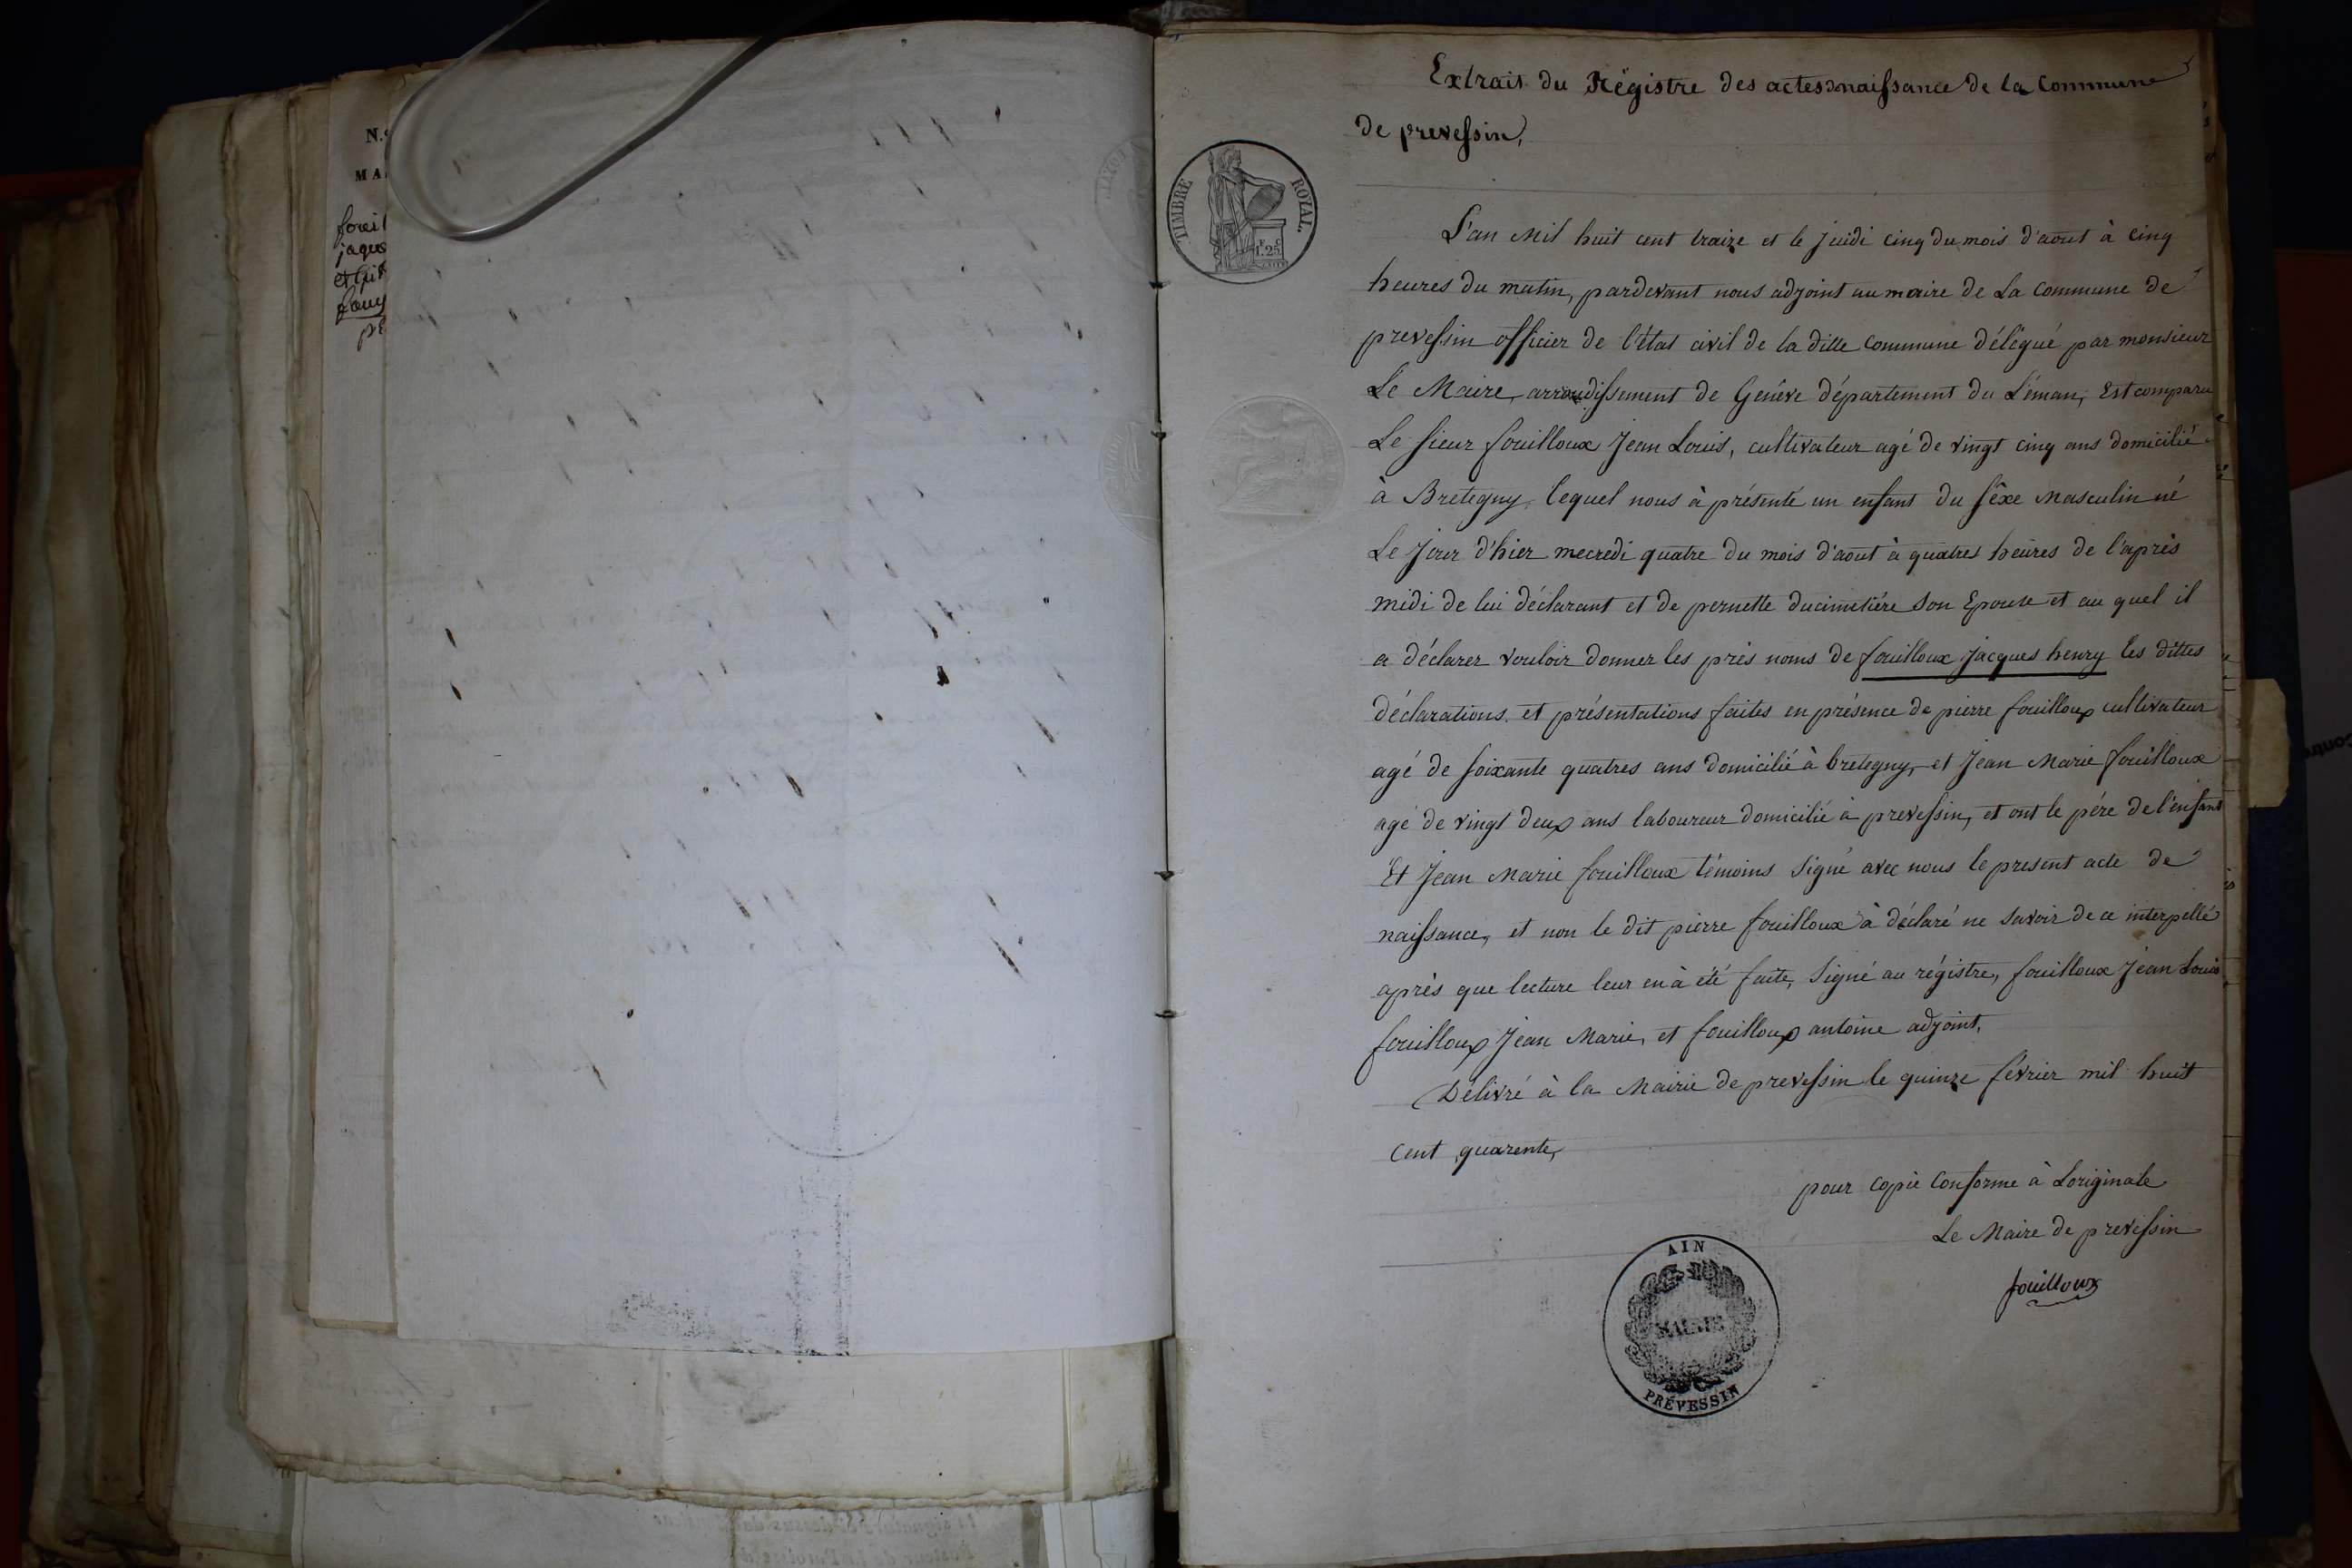 N.
MA
foui
jaque
et qu
fouy
pe
Extrait du Régistre des actes naissance de la Commune
de prevessin,
TIMBRE
ROYAL
1.25
L'an Mil huit cent traize et le Juidi cinq du mois d'aout à cinq
heures du matin, pardevant nous adjoint au maire de La Commune de
prevessin officier de l'état civil de la ditte Commune délégué par monsieur
Le Maire, arrondissement de Genêve département du Léman, Est comparu
Le sieur fouilloux Jean Louis, cultivateur agé de vingt cinq ans domicilié
à Bretegny, lequel nous à présenté un enfant du séxe Masculin né
Le Jour d'hier mecredi quatre du mois d'aout à quatres heures de l'après
midi de lui déclarant et de pernette ducimetiére son Epouse et au quel il
a déclarer vouloir donner les prés noms de fouilloux jacques henry les dittes
déclarations et présentations faites en présence de pierre fouilloux cultivateur
agé de soixante quatres ans domicilié à bretegny, et Jean Marie fouilloux
agé de vingt deux ans laboureur domicilié à prevessin, et ont le pére de l'énfant
Et Jean Marie fouilloux témoins signé avec nous le present acte de
naissance, et non le dit pierre fouilloux à déclaré ne savoir de ce interpellé
après que lecture leur en à été faite, signé au régistre, fouilloux Jéan Louis
fouilloux Jean Marie, et fouilloux antoine adjoint.
Délivré à la Mairie de prevessin le quinze février mil huit
cent quarente,
pour copie Conforme à Loriginale
Le Maire de prevessin
fouilloux
AIN
MAIRIE
PRÉVESSIN